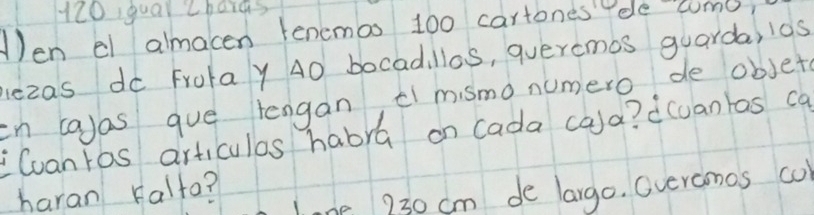 120 igual 2 horas
1) en el almacen tenemos 100 cartones de zumo,
piezas de Frota y 40 bocadillos, queremos guardarlos
en cajas que tengan el mismo numero de objeto
¿Cuantos articulos habrá en cada caja? ¿Cuantas ca
haran Falta?
230 cm de largo. Queremos co